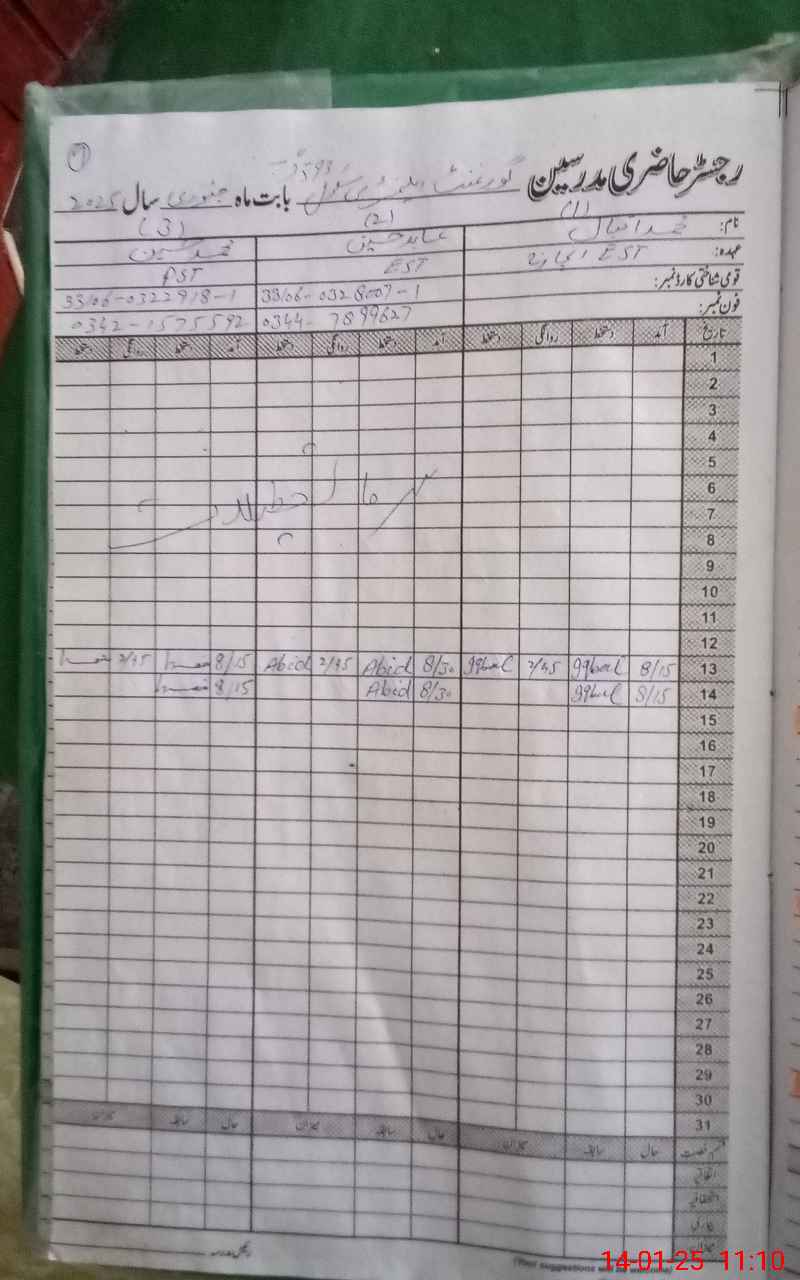 رجسٹر حاضری مدرسین گورنمنٹ ایلیمنٹری سکول بابت ماہ جنوری سال 2025
(1) (2) (3)
نام: محمد اقبال عابد حسین محمد حسین
عہدہ: EST انچارج EST PST
قومی شناختی کارڈ نمبر: 33106-0328007-1 33106-0322918-1
فون نمبر: 0344-7899627 0342-1575592
تاریخ آمد دستخط روانگی دستخط آمد دستخط روانگی دستخط آمد دستخط روانگی دستخط
1
2
3
4
5
6
7
8
9
10
11
12
13 8/15 Iqbal 2/45 Iqbal 8/30 Abid 2/45 Abid 8/15 2/45
14 8/15 Iqbal 8/30 Abid 8/15
15
16
17
18
19
20
21
22
23
24
25
26
27
28
29
30
31
قسم رخصت حال سابقہ میزان حال سابقہ میزان حال سابقہ میزان
اتفاقیہ
استحقاقیہ
میزان
(Your suggestions will be welcome)
14-01-25 11:10